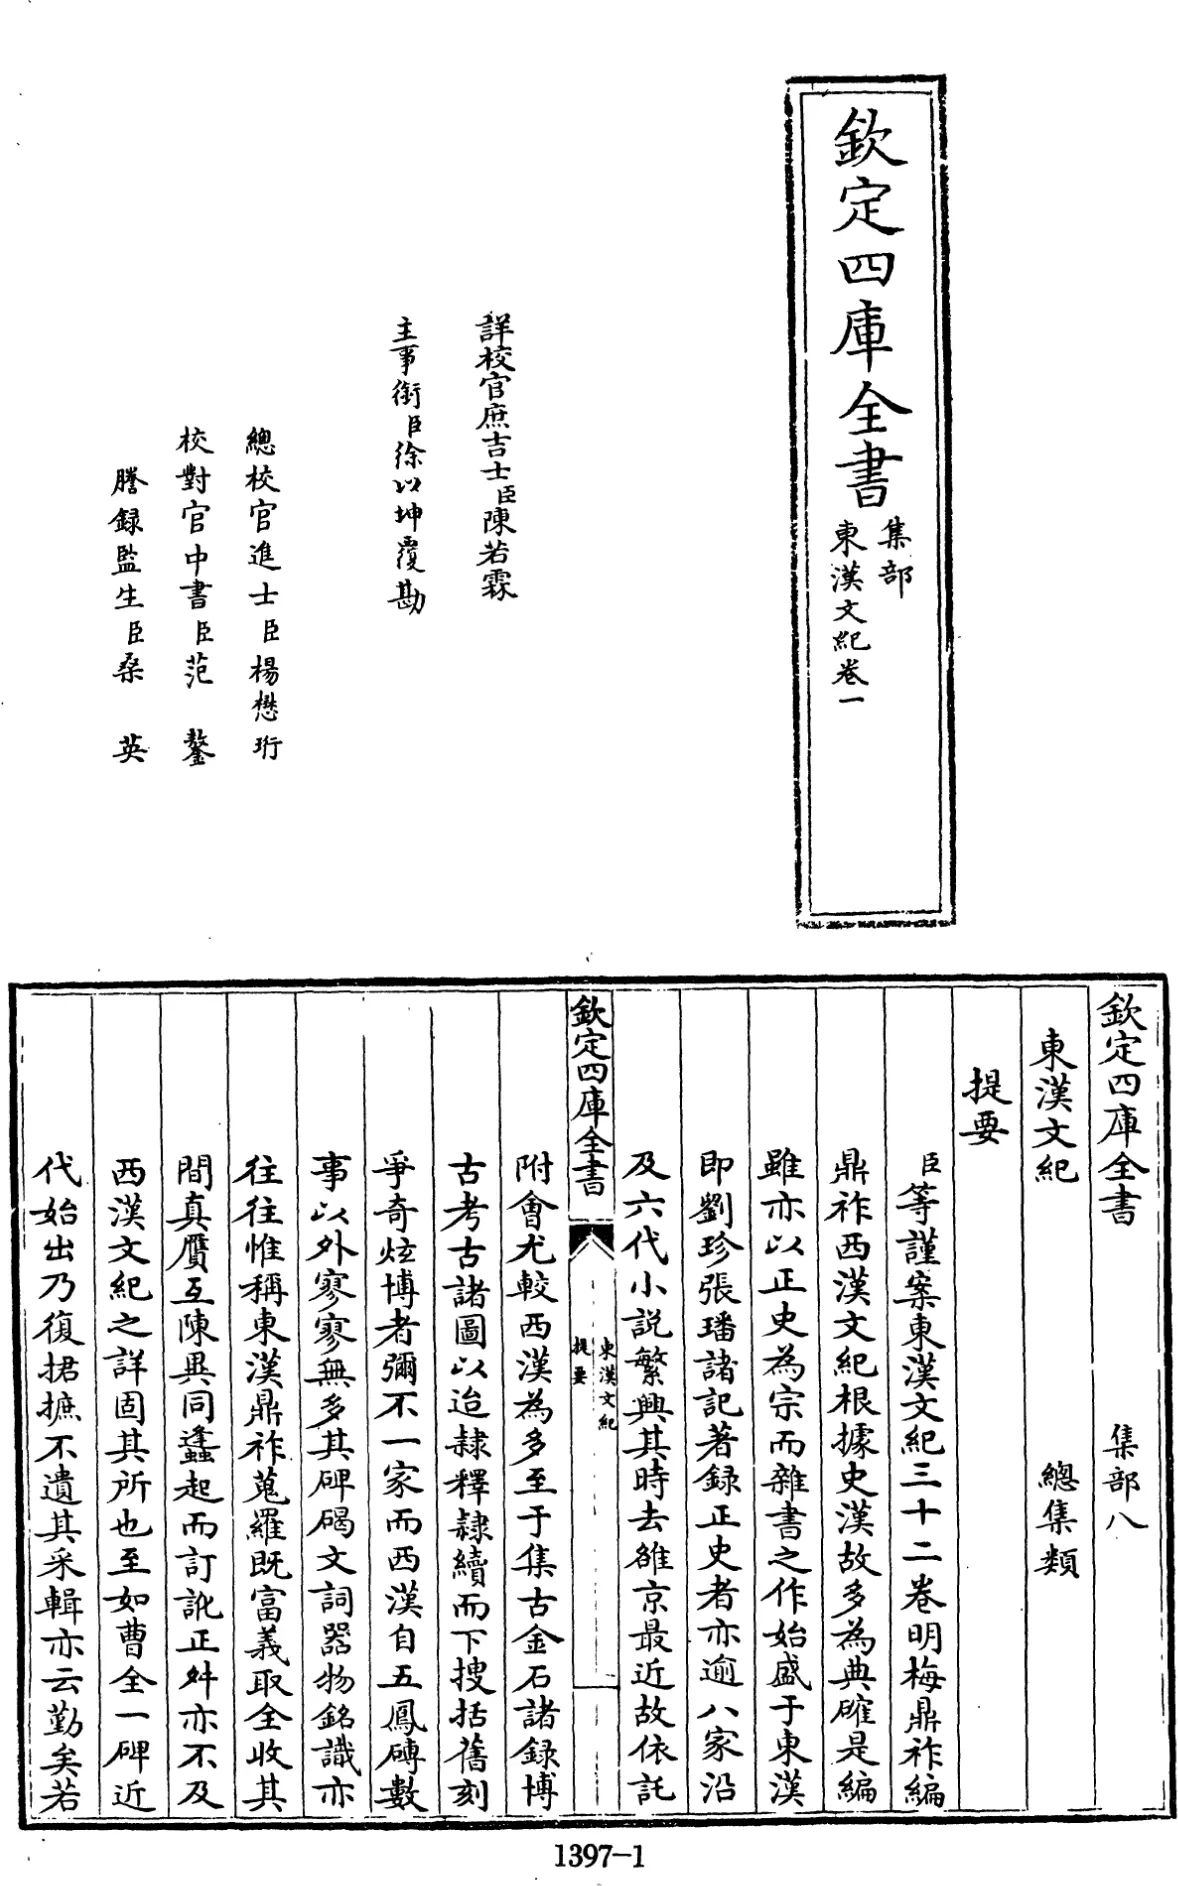 欽定四庫全書
集部
東漢文紀卷一
詳校官庶吉士臣陳若霖
主事銜臣徐以坤覆勘
總校官進士臣楊懋珩
校對官中書臣范鏊
謄錄監生臣桑英
欽定四庫全書 集部八
東漢文紀 總集類
提要
臣等謹案東漢文紀三十二卷明梅鼎祚編
鼎祚西漢文紀根據史漢故多為典確是編
雖亦以正史為宗而雜書之作始盛于東漢
即劉珍張璠諸記著録正史者亦逾八家沿
及六代小説繁興其時去雒京最近故依託
欽定四庫全書
東漢文紀
提要
附會尤較西漢為多至于集古金石諸録博
古考古諸圖以迨隸釋隸續而下搜括舊刻
爭奇炫博者彌不一家而西漢自五鳳磚數
事以外寥寥無多其碑碣文詞器物銘識亦
往往惟稱東漢鼎祚蒐羅既富義取全收其
間真贋互陳異同蠭起而訂訛正舛亦不及
西漢文紀之詳固其所也至如曹全一碑近
代始出乃復捃摭不遺其采輯亦云勤矣若
1397-1